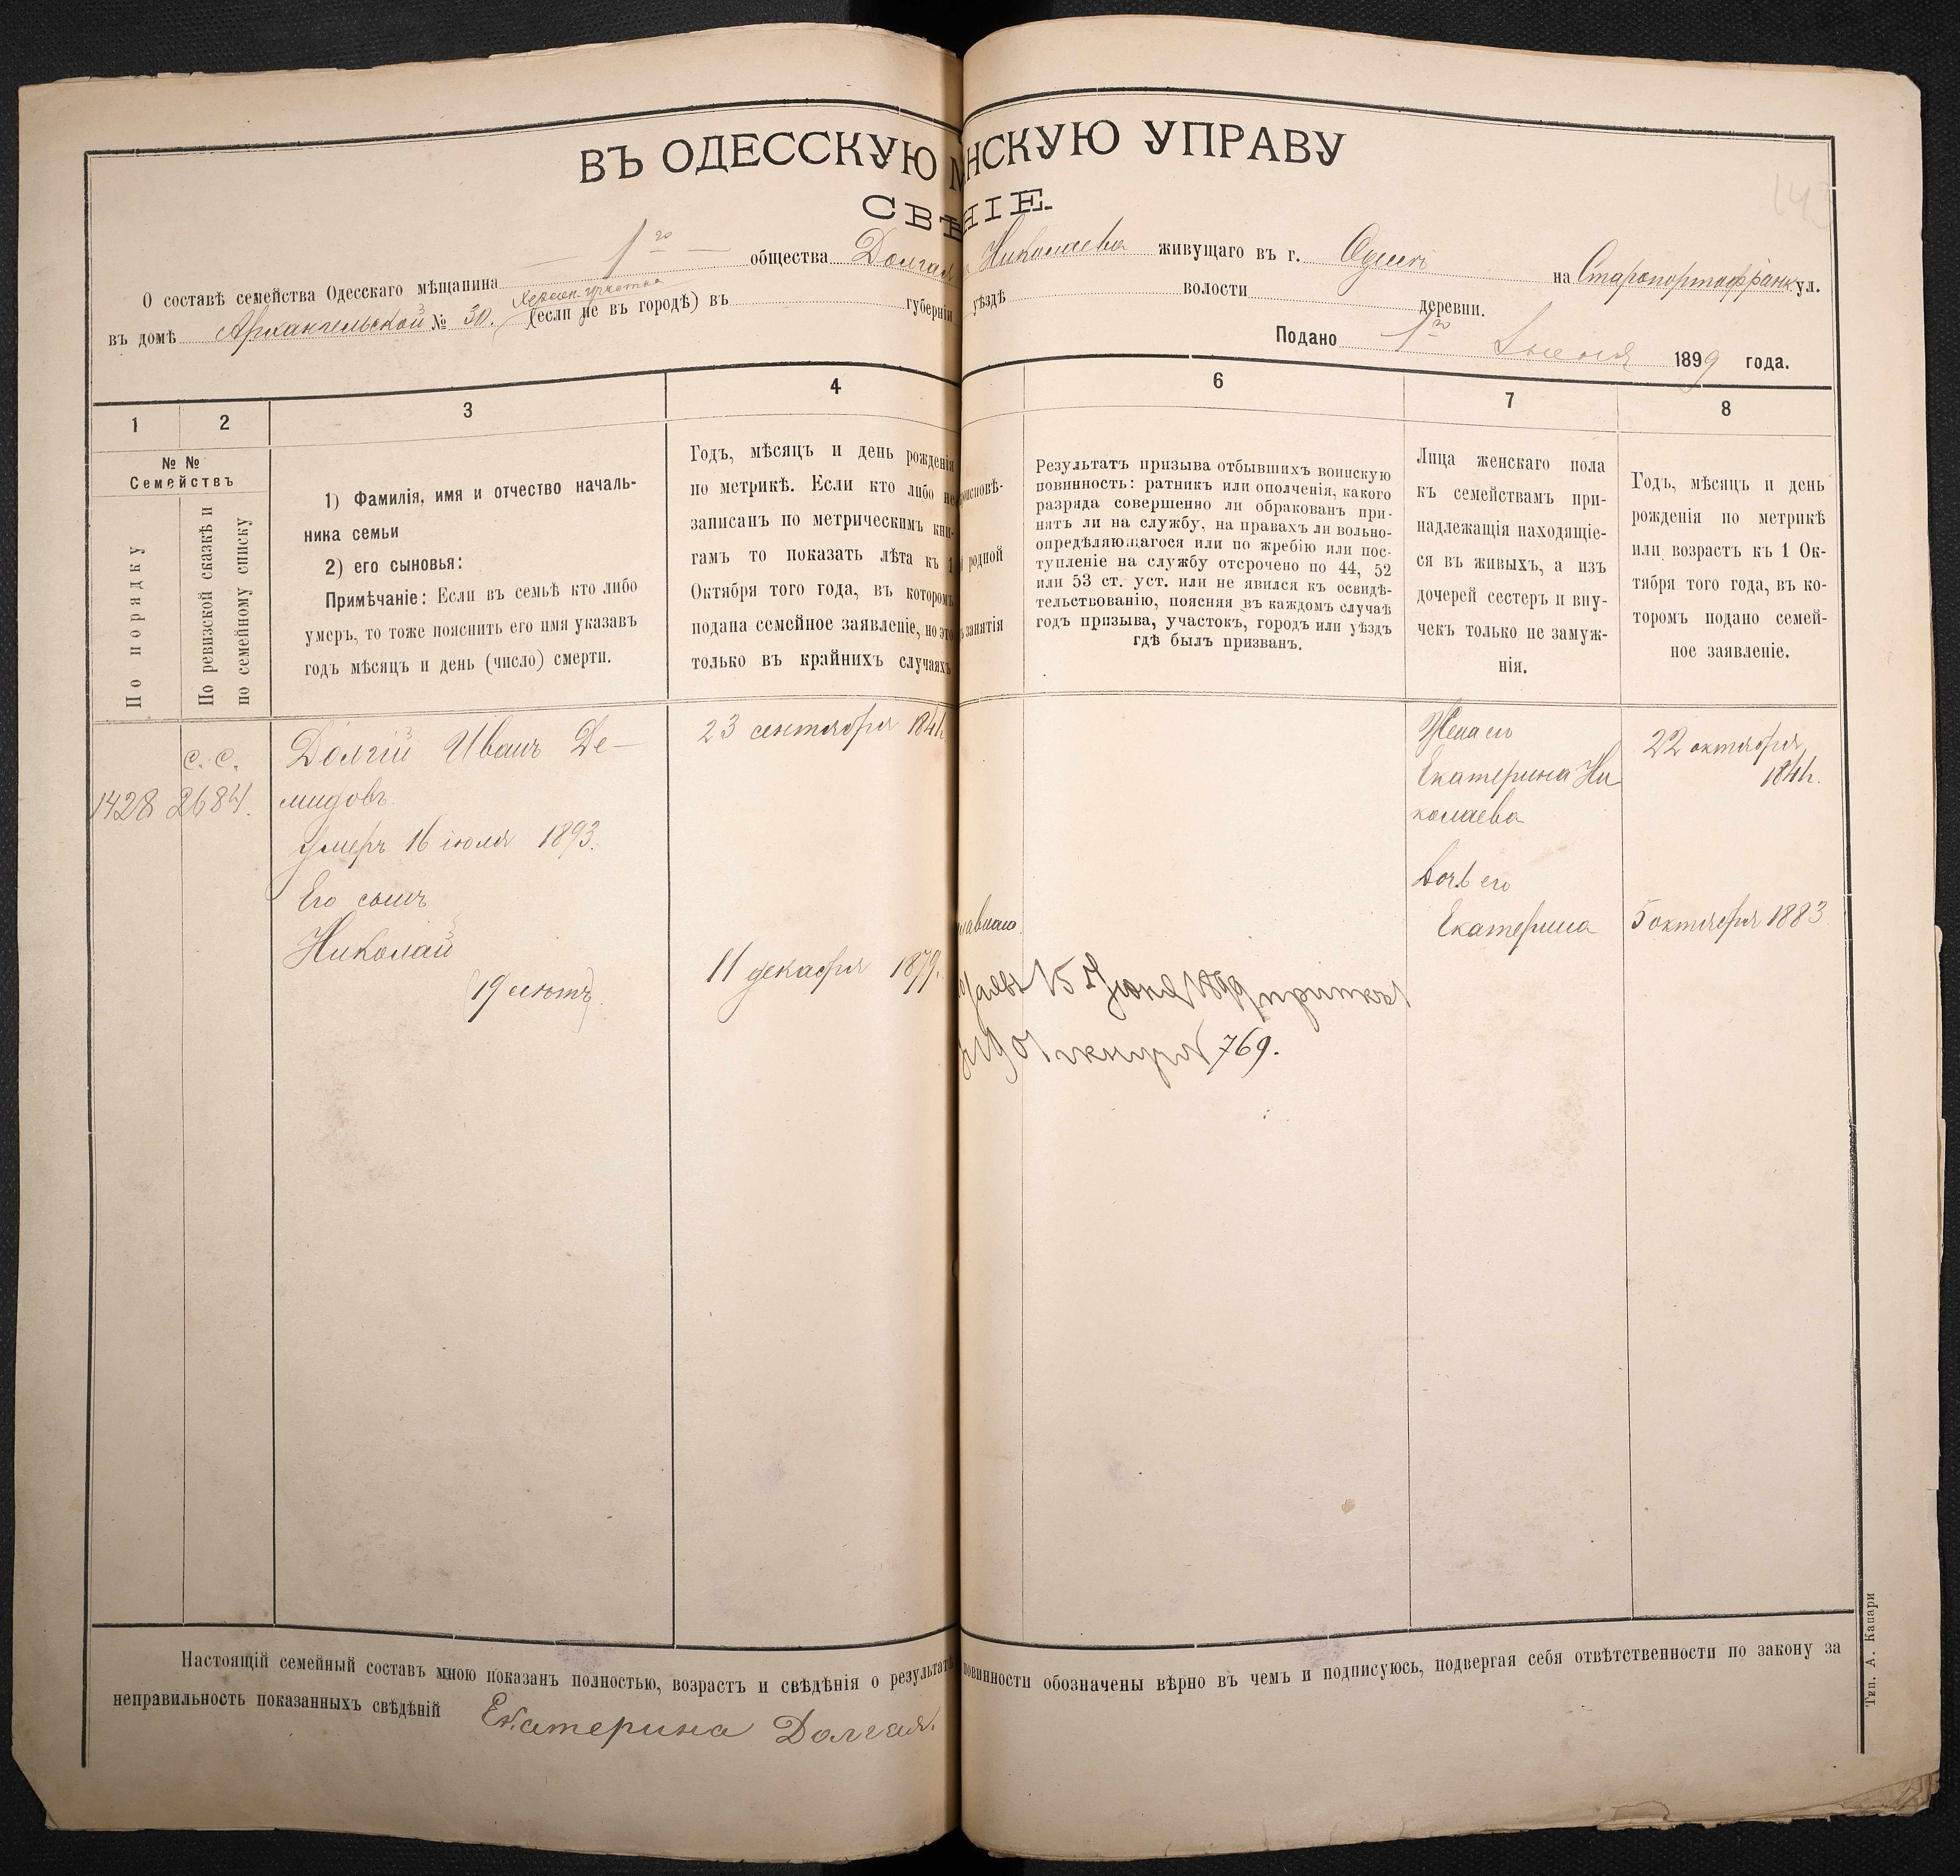 ВЪ ОДЕССКУЮ НСКУЮ УПРАВУ
СВѢ НІЕ.
О составѣ семейства Одесскаго мѣщанина 1го общества Долгая Николаева живущаго въ г. Одессѣ на Старопортофранк ул.
въ домѣ Архангельской № 30. Херсон. участка (если не въ городѣ) въ губерніи уѣздѣ волости деревни.
Подано 1го 1899 года.
1 2 3 4 6 7 8
№ № Семействъ
По порядку
По ревизской сказкѣ и
по семейному списку
1) Фамилія, имя и отчество началь-
ника семьи
2) его сыновья:
Примѣчаніе: Если въ семьѣ кто либо
умеръ, то тоже пояснить его имя указавъ
годъ мѣсяцъ и день (число) смерти.
Годъ, мѣсяцъ и день рожденія
по метрикѣ. Если кто либо не
записанъ по метрическимъ кни-
гамъ то показать лѣта къ 1
Октября того года, въ которомъ
подана семейное заявленіе, но это
только въ крайнихъ случаяхъ
исповѣ-
родной
занятія
Результатъ призыва отбывшихъ воинскую
повинность: ратникъ или ополченія, какого
разряда совершенно ли обракованъ при-
нятъ ли на службу, на правахъ ли вольно-
опредѣляющагося или по жребію или пос-
тупленіе на службу отсрочено по 44, 52
или 53 ст. уст. или не явился къ освидѣ-
тельствованію, поясняя въ каждомъ случаѣ
годъ призыва, участокъ, городъ или уѣздъ
гдѣ былъ призванъ.
Лица женскаго пола
къ семействамъ при-
надлежащія находящіе-
ся въ живыхъ, а изъ
дочерей сестеръ и вну-
чекъ только не замуж-
нія.
Годъ, мѣсяцъ и день
рожденія по метрикѣ
или возрастъ къ 1 Ок-
тября того года, въ ко-
торомъ подано семей-
ное заявленіе.
с. с.
1428 2684.
Долгій Иванъ Де-
мидовъ.
Умеръ 16 іюля 1893.
Его сынъ
Николай
(19 лѣтъ)
23 сентября
11 декабря 1879.
15 1899
769.
Жена его
Екатерина Ни
колаева
Дочь его
Екатерина
22 октября
5 октября 1883
Настоящій семейный составъ мною показанъ полностью, возрастъ и свѣдѣнія о результатѣ повинности обозначены вѣрно въ чемъ и подписуюсь, подвергая себя отвѣтственности по закону за
неправильность показанныхъ свѣдѣній Екатерина Долгая.
Тип. А. Капари